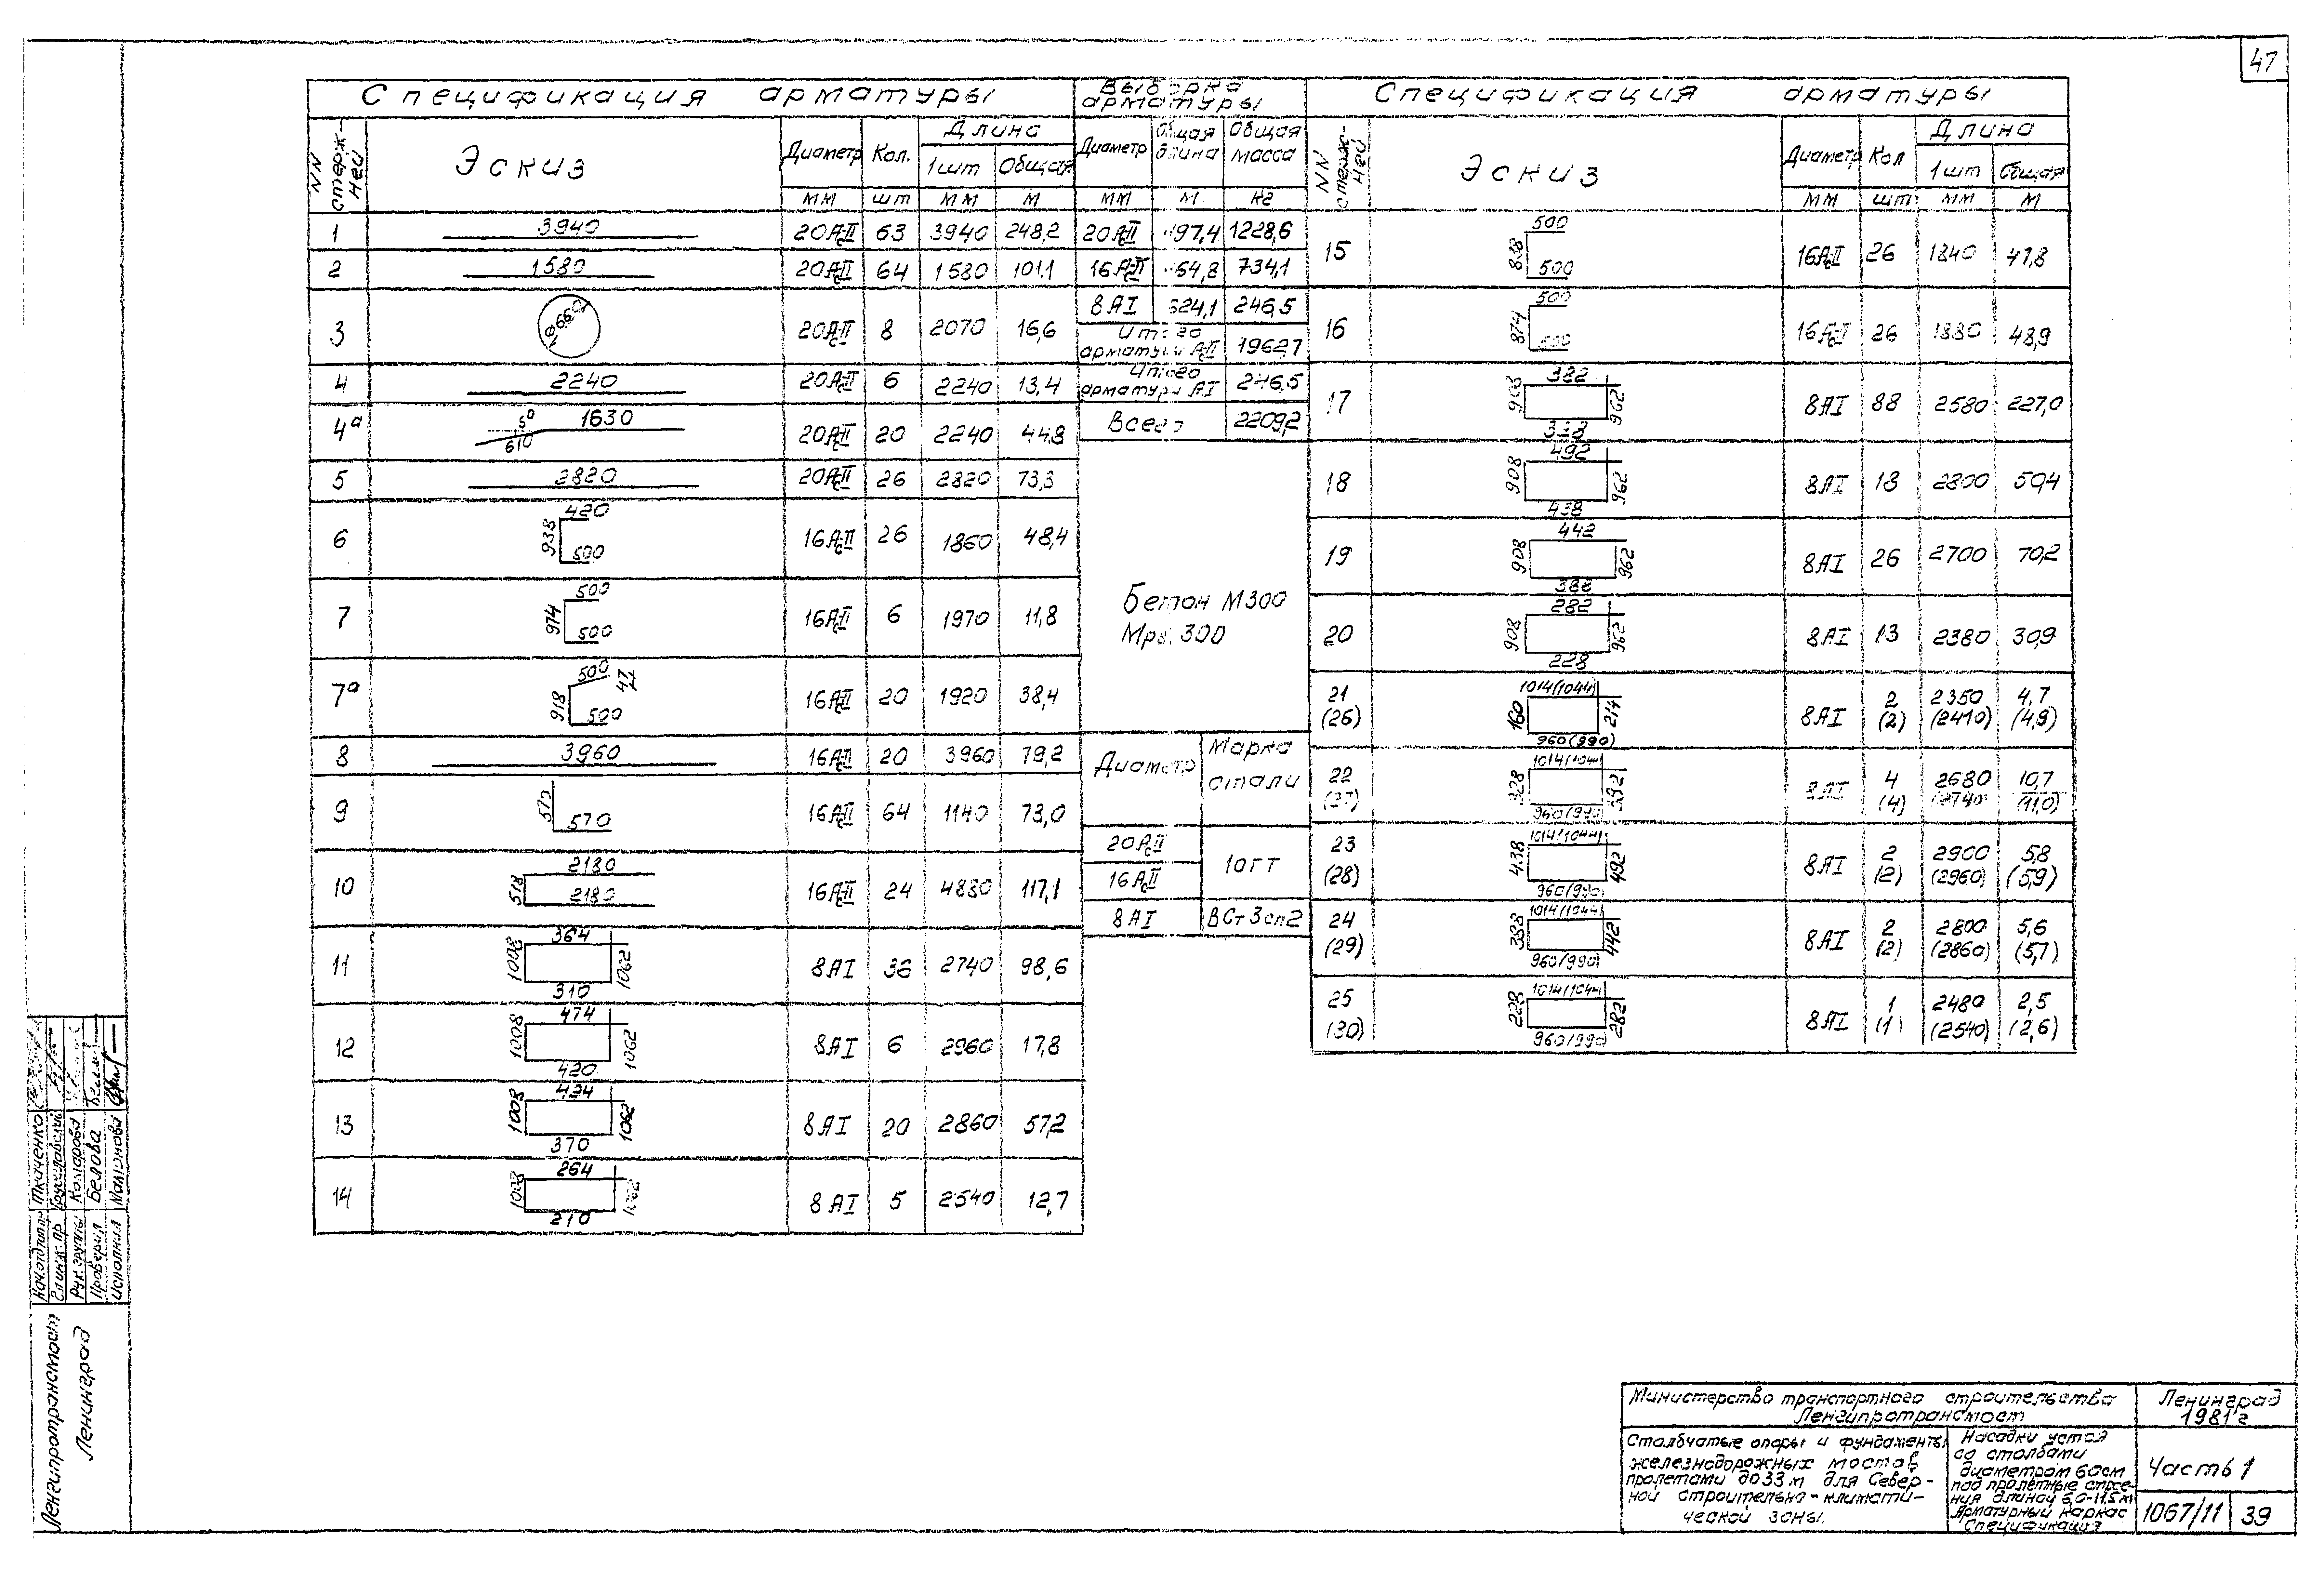 47
Спецификация арматуры
Выборка арматуры
Спецификация арматуры
NN стержней Эскиз Диаметр Кол. Длина 1шт Общая
Диаметр Общая длина Общая масса
NN стержней Эскиз Диаметр Кол Длина 1шт Общая
мм шт мм м мм м кг мм шт мм м
1 3940 20АсII 63 3940 248,2
2 1580 20АсII 64 1580 101,1
3 ф660 20АсII 8 2070 16,6
4 2240 20АсII 6 2240 13,4
4а 50 1630 610 20АсII 20 2240 44,8
5 2820 20АсII 26 2820 73,3
6 420 938 500 16АсII 26 1860 48,4
7 500 974 500 16АсII 6 1970 11,8
7а 500 47 918 500 16АсII 20 1920 38,4
8 3960 16АсII 20 3960 79,2
9 570 570 16АсII 64 1140 73,0
10 2180 518 2180 16АсII 24 4880 117,1
11 364 1008 1062 310 8АI 36 2740 98,6
12 474 1008 1062 420 8АI 6 2960 17,8
13 424 1008 1062 370 8АI 20 2860 57,2
14 264 1008 1062 210 8АI 5 2540 12,7
20АсII 497,4 1228,6
16АсII 464,8 734,1
8АI 624,1 246,5
Итого арматуры АсII 1962,7
Итого арматуры АI 246,5
Всего 2209,2
Бетон М300
Мрз 300
Диаметр Марка стали
20АсII
10ГТ
16АсII
8АI ВСт3сп2
15 500 838 500 16АсII 26 1840 47,8
16 500 874 500 16АсII 26 1880 48,9
17 382 908 962 328 8АI 88 2580 227,0
18 492 908 962 438 8АI 18 2800 50,4
19 442 908 962 388 8АI 26 2700 70,2
20 282 908 962 228 8АI 13 2380 30,9
21 (26) 1014(1044) 160 214 960(990) 8АI 2 (2) 2350 (2410) 4,7 (4,9)
22 (27) 1014(1044) 328 382 960(990) 8АI 4 (4) 2680 (2740) 10,7 (11,0)
23 (28) 1014(1044) 438 492 960(990) 8АI 2 (2) 2900 (2960) 5,8 (5,9)
24 (29) 1014(1044) 388 442 960(990) 8АI 2 (2) 2800 (2860) 5,6 (5,7)
25 (30) 1014(1044) 228 282 960(990) 8АI 1 (1) 2480 (2540) 2,5 (2,6)
Нач.отдела Ткаченко
Гл.инж.пр.
Рук.группы Комарова
Проверил Белова
Исполнил Мамонова
Ленгипротрансмост
Ленинград
Министерство транспортного строительства
Ленгипротрансмост
Ленинград
1981г
Столбчатые опоры и фундаменты
железнодорожных мостов
пролетами до 33 м для Север-
ной строительно-климати-
ческой зоны.
Насадки устоя
со столбами
диаметром 60см
под пролетные строе-
ния длиной 6,0-11,5м
Арматурный каркас
Спецификация
Часть 1
1067/11 39